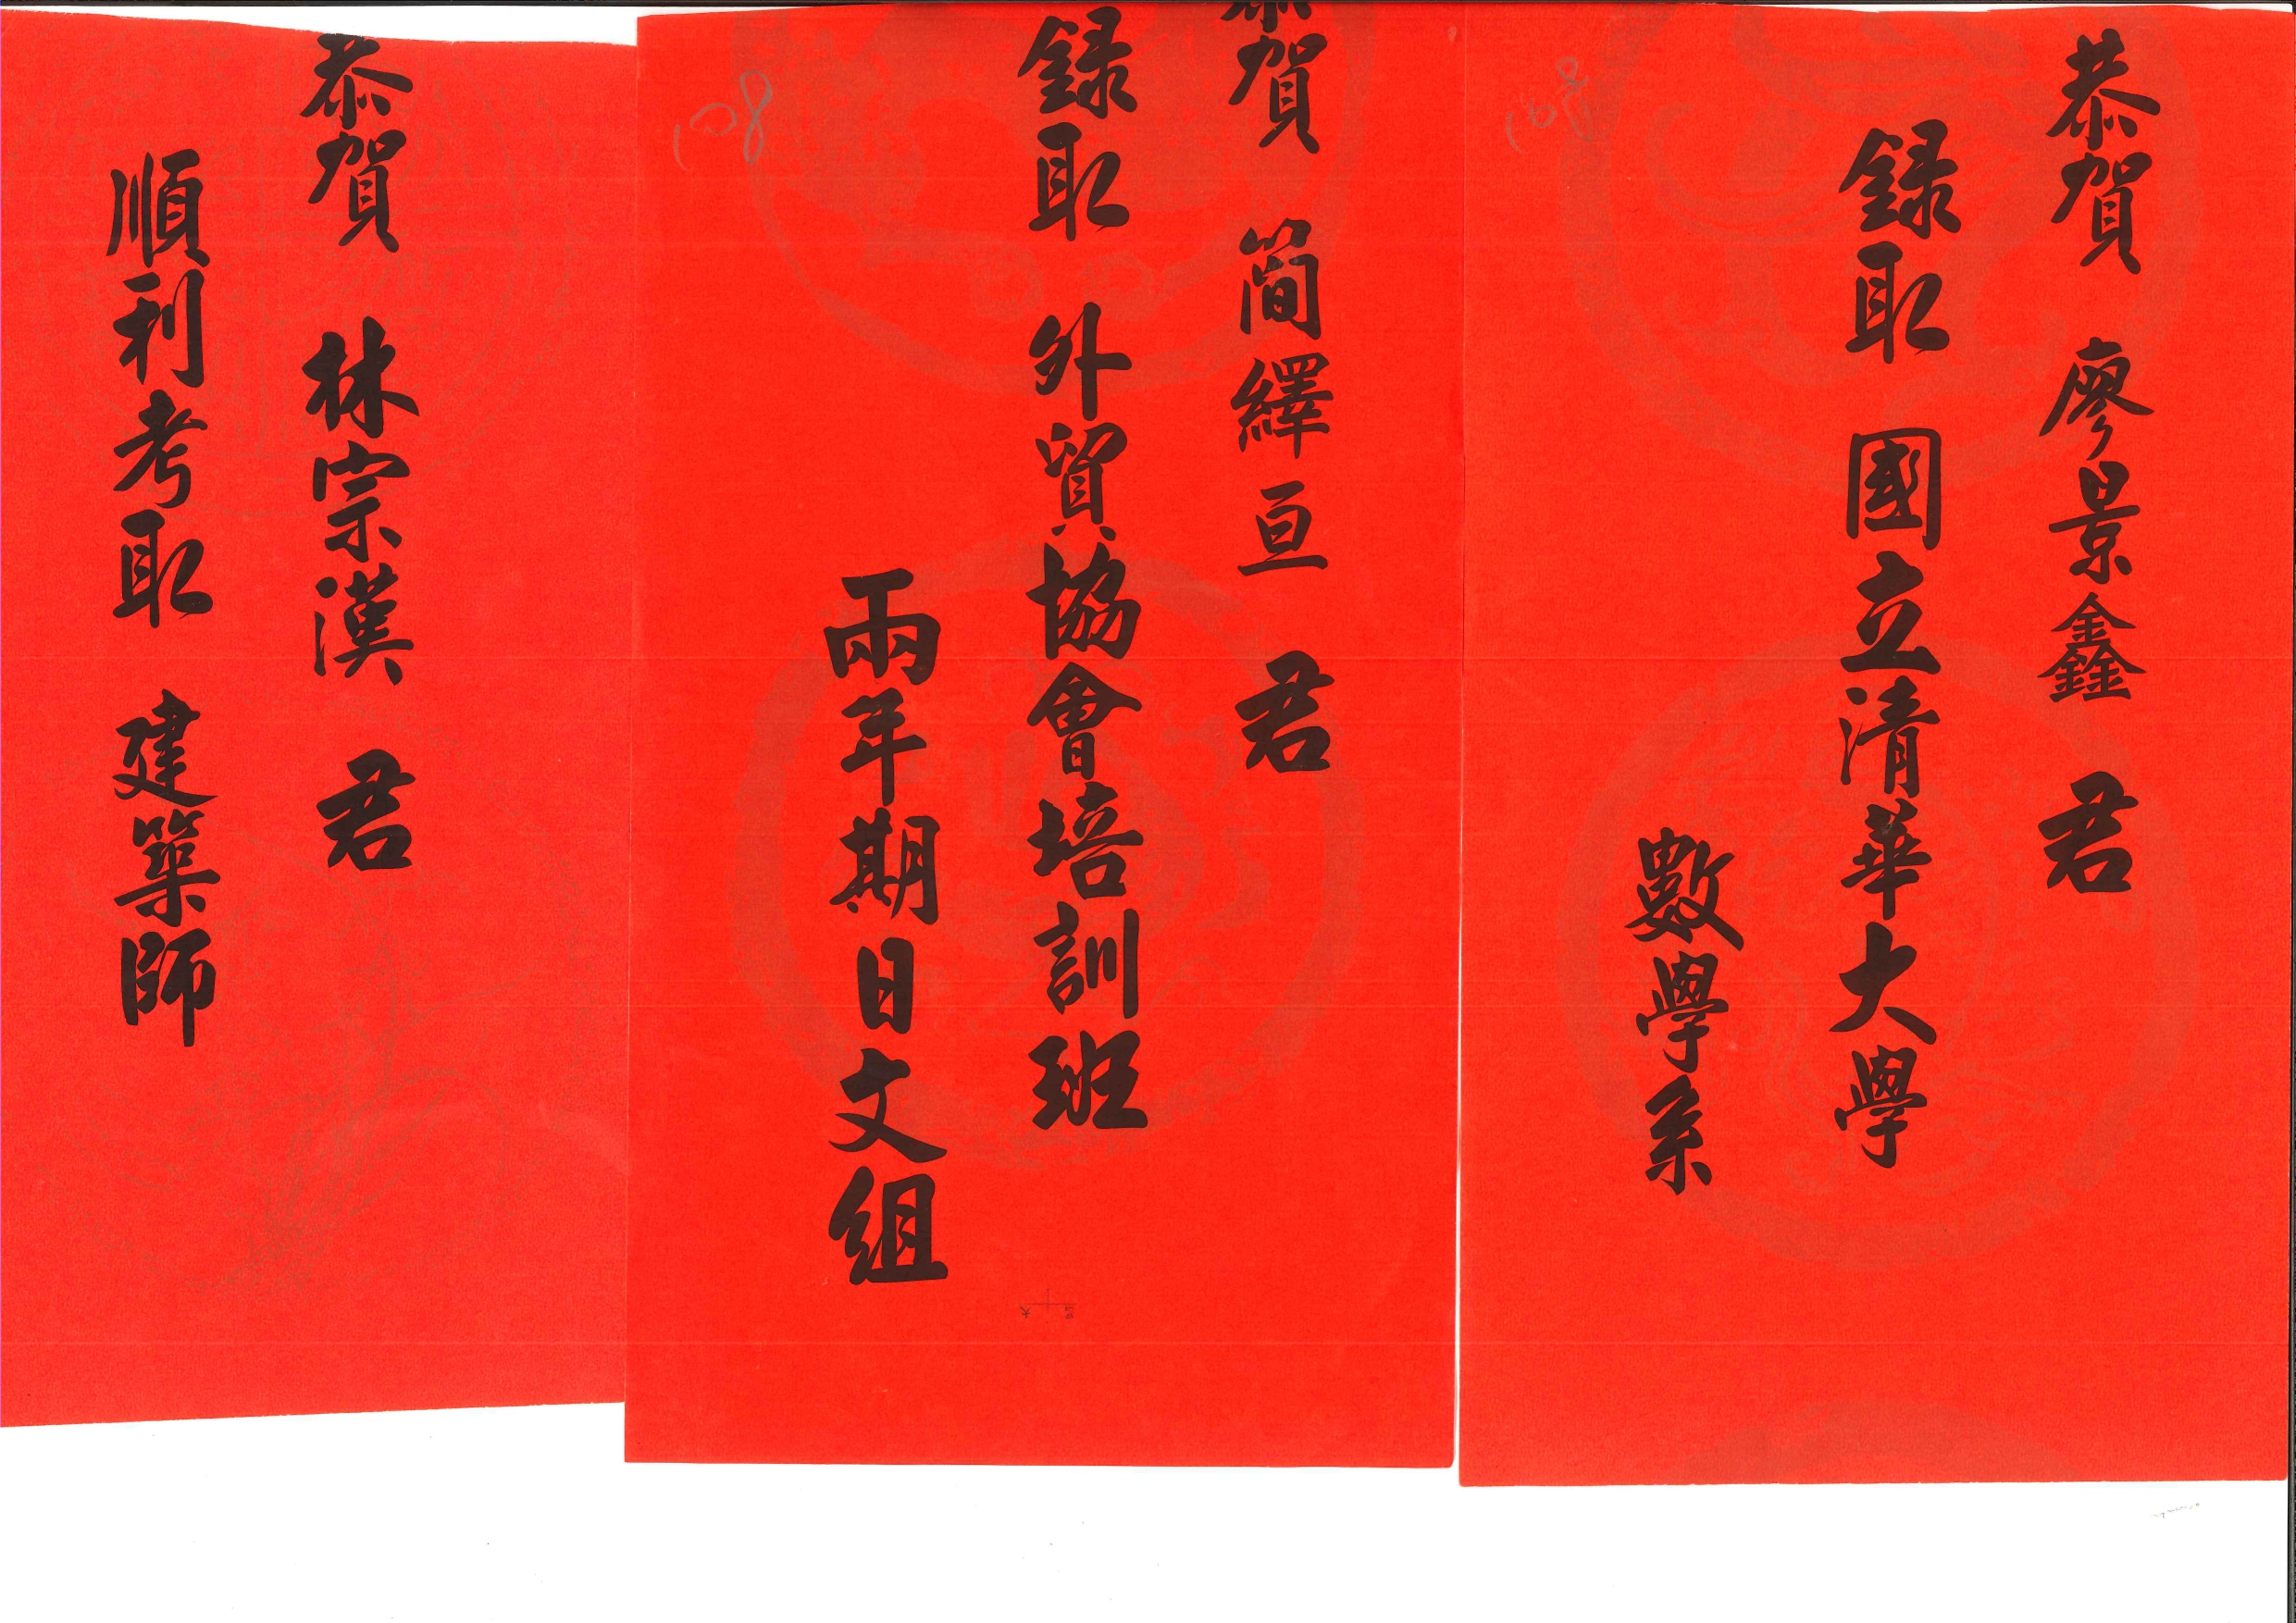 恭賀 廖景鑫 君
錄取 國立清華大學
數學系
108
恭賀 簡繹亘 君
錄取 外貿協會培訓班
兩年期日文組
108
恭賀 林宗漢 君
順利考取 建築師